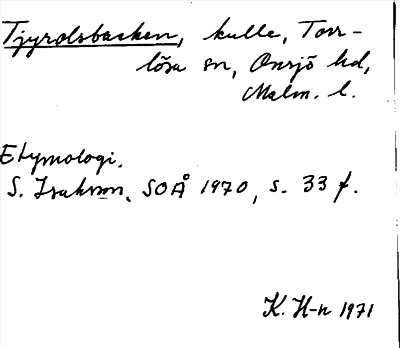 Tjyrolsbacken, kulle, Torr-
lösa sn, Onsjö hd,
Malm. l.
Etymologi.
S. Isakson, SOÅ 1970, s. 33 f.
K. H-n 1971